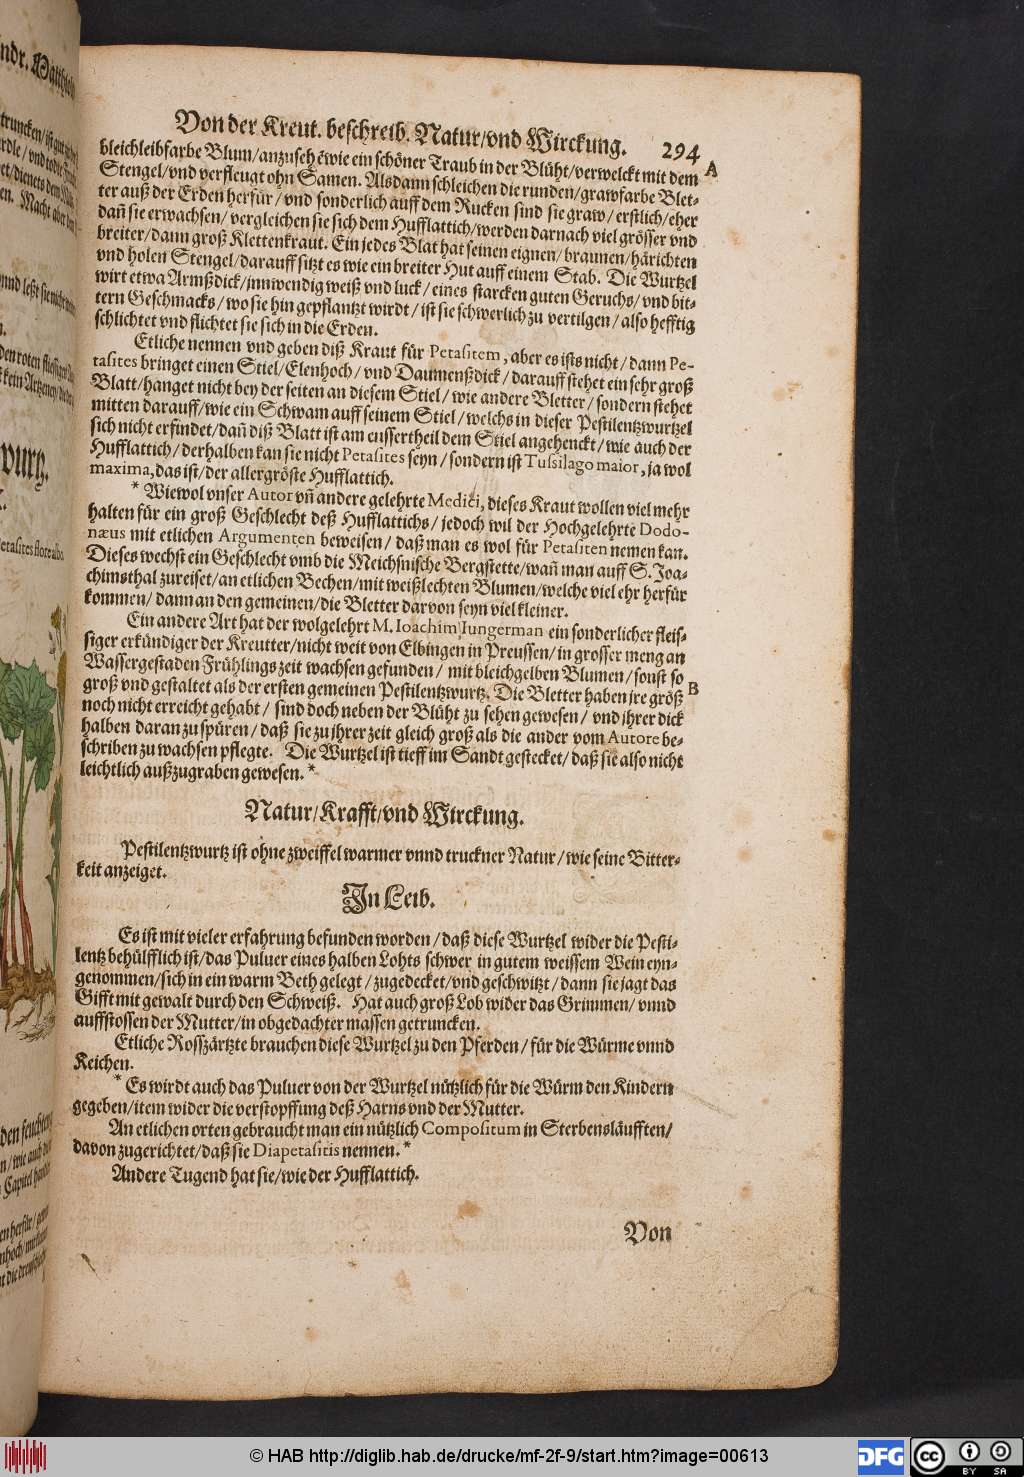 Von der Kreut. beschreib. Natur/vnd Wirckung. 294
bleichleibfarbe Blum/anzusehẽ wie ein schöner Traub in der Blüht/verwelckt mit dem A
Stengel/vnd verfleugt ohn Samen. Alsdann schleichen die runden/grawfarbe Blet-
ter auß der Erden herfür/vnd sonderlich auff dem Rucken sind sie graw/erstlich/eher
dañ sie erwachsen/vergleichen sie sich dem Hufflattich/werden darnach viel grösser vnd
breiter/dann groß Klettenkraut. Ein jedes Blat hat seinen eignen/braunen/härichten
vnd holen Stengel/darauff sitzt es wie ein breiter Hut auff einem Stab. Die Wurtzel
wirt etwa Armßdick/jnnwendig weiß vnd luck/eines starcken guten Geruchs/vnd bit-
tern Geschmacks/wo sie hin gepflantzt wirdt/ist sie schwerlich zu vertilgen/also hefftig
schlichtet vnd flichtet sie sich in die Erden.
Etliche nennen vnd geben diß Kraut für Petasitem, aber es ists nicht/dann Pe-
tasites bringet einen Stiel/Elenhoch/vnd Daumenßdick/darauff stehet ein sehr groß
Blatt/hanget nicht bey der seiten an diesem Stiel/wie andere Bletter/sondern stehet
mitten darauff/wie ein Schwam auff seinem Stiel/welchs in dieser Pestilentzwurtzel
sich nicht erfindet/dañ diß Blatt ist am eussertheil dem Stiel angehenckt/wie auch der
Hufflattich/derhalben kan sie nicht Petasites seyn/sondern ist Tussilago maior, ja wol
maxima, das ist/der allergröste Hufflattich.
* Wiewol vnser Autor vñ andere gelehrte Medici, dieses Kraut wollen viel mehr
halten für ein groß Geschlecht deß Hufflattichs/jedoch wil der Hochgelehrte Dodo-
næus mit etlichen Argumenten beweisen/daß man es wol für Petasiten nemen kan.
Dieses wechst ein Geschlecht vmb die Meichsnische Bergstette/wañ man auff S. Joa-
chimsthal zureiset/an etlichen Bechen/mit weißlechten Blumen/welche viel ehr herfür
kommen/dann an den gemeinen/die Bletter darvon seyn viel kleiner.
Ein andere Art hat der wolgelehrt M. Ioachim Iungerman ein sonderlicher fleis-
siger erkündiger der Kreutter/nicht weit von Elbingen in Preussen/in grosser meng an
Wassergestaden Frühlings zeit wachsen gefunden/mit bleichgelben Blumen/sonst so
groß vnd gestaltet als der ersten gemeinen Pestilentzwurtz. Die Bletter haben jre größ B
noch nicht erreicht gehabt/sind doch neben der Blüht zu sehen gewesen/vnd jhrer dick
halben daran zu spüren/daß sie zu jhrer zeit gleich groß als die ander vom Autore be-
schriben zu wachsen pflegte. Die Wurtzel ist tieff im Sandt gestecket/daß sie also nicht
leichtlich außzugraben gewesen. *
Natur/Krafft/vnd Wirckung.
Pestilentzwurtz ist ohne zweiffel warmer vnnd truckner Natur/wie seine Bitter-
keit anzeiget.
In Leib.
Es ist mit vieler erfahrung befunden worden/daß diese Wurtzel wider die Pesti-
lentz behülfflich ist/das Puluer eines halben Lohts schwer in gutem weissem Wein eyn-
genommen/sich in ein warm Beth gelegt/zugedecket/vnd geschwitzt/dann sie jagt das
Gifft mit gewalt durch den Schweiß. Hat auch groß Lob wider das Grimmen/vnnd
auffstossen der Mutter/in obgedachter massen getruncken.
Etliche Rossärtzte brauchen diese Wurtzel zu den Pferden/für die Würme vnnd
Keichen.
* Es wirdt auch das Puluer von der Wurtzel nützlich für die Würm den Kindern
gegeben/item wider die verstopffung deß Harns vnd der Mutter.
An etlichen orten gebraucht man ein nützlich Compositum in Sterbensläufften/
davon zugerichtet/daß sie Diapetasitis nennen. *
Andere Tugend hat sie/wie der Hufflattich.
Von
© HAB http://diglib.hab.de/drucke/mf-2f-9/start.htm?image=00613
DFG
cc BY SA